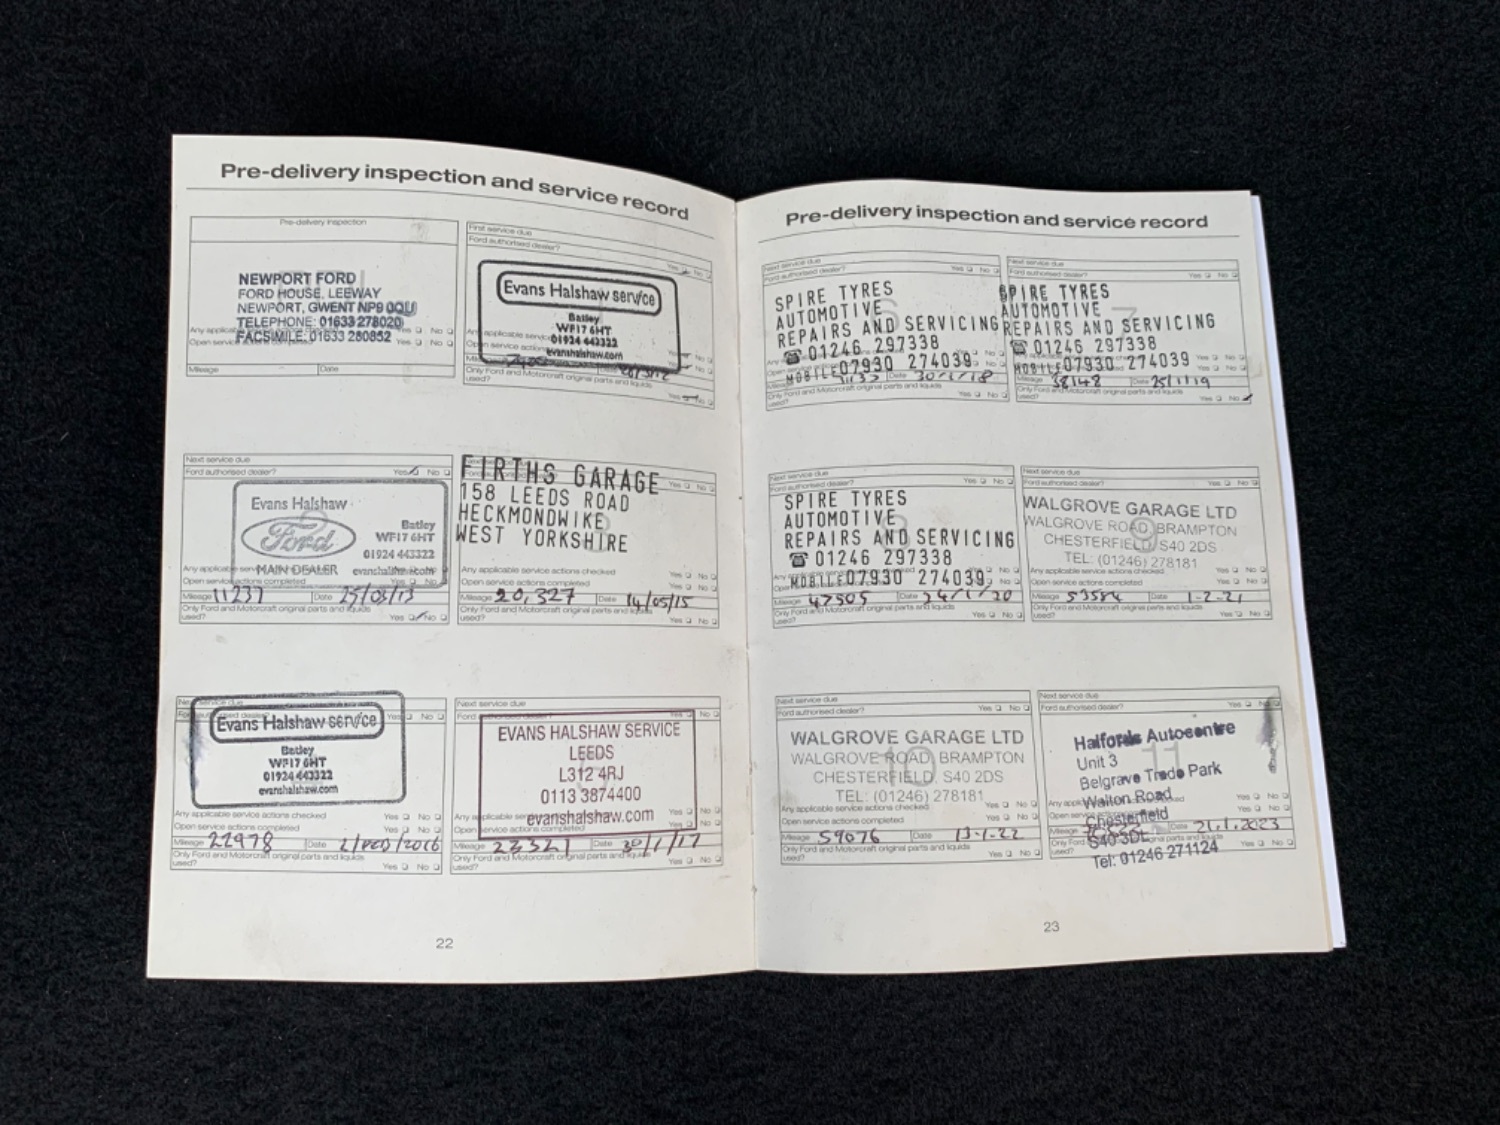 Pre-delivery inspection and service record
Pre-delivery inspection
NEWPORT FORD
FORD HOUSE, LEEWAY
NEWPORT, GWENT NP9 0QU
TELEPHONE: 01633 278020
FACSIMILE: 01633 280852
Any applicable Yes No
Open service actions completed Yes No
Mileage Date
First service due
Ford authorised dealer?
Yes No
Evans Halshaw service
Batley
WF17 6HT
01924 443322
evanshalshaw.com
Any applicable service
Open service actions
Only Ford and Motorcraft original parts and liquids
used? Yes No
Next service due
Ford authorised dealer? Yes No
Evans Halshaw
Ford
Batley
WF17 6HT
01924 443322
MAIN DEALER evanshalshaw.com
Any applicable service
Open service actions completed Yes No
Mileage 11237 Date 25/03/13
Only Ford and Motorcraft original parts and liquids
used? Yes No
FIRTHS GARAGE
158 LEEDS ROAD
HECKMONDWIKE
WEST YORKSHIRE
Yes No
Any applicable service actions checked Yes No
Open service actions completed Yes No
Mileage 20,327 Date 14/05/15
Only Ford and Motorcraft original parts and liquids
used? Yes No
Next service due
Evans Halshaw service
Batley
WF17 6HT
01924 443322
evanshalshaw.com
Yes No
Any applicable service actions checked Yes No
Open service actions completed Yes No
Mileage 22978 Date 2/FEB/2016
Only Ford and Motorcraft original parts and liquids
used? Yes No
Next service due
Ford authorised dealer? Yes No
EVANS HALSHAW SERVICE
LEEDS
L312 4RJ
0113 3874400
evanshalshaw.com
Any applicable service actions checked Yes No
Open service actions completed Yes No
Mileage 23321 Date 30/1/17
Only Ford and Motorcraft original parts and liquids
used? Yes No
22
Pre-delivery inspection and service record
Next service due
Ford authorised dealer? Yes No
SPIRE TYRES
AUTOMOTIVE
REPAIRS AND SERVICING
01246 297338
MOBILE 07930 274039
Mileage Date 30/1/18
Only Ford and Motorcraft original parts and liquids
used? Yes No
Next service due
Ford authorised dealer? Yes No
7
SPIRE TYRES
AUTOMOTIVE
REPAIRS AND SERVICING
01246 297338
MOBILE 07930 274039
Mileage 38148 Date 25/1/19
Only Ford and Motorcraft original parts and liquids
used? Yes No
Next service due
Ford authorised dealer? Yes No
SPIRE TYRES
AUTOMOTIVE
REPAIRS AND SERVICING
01246 297338
MOBILE 07930 274039
Mileage 47505 Date 24/1/20
Only Ford and Motorcraft original parts and liquids
used? Yes No
Next service due
Ford authorised dealer? Yes No
9
WALGROVE GARAGE LTD
WALGROVE ROAD, BRAMPTON
CHESTERFIELD, S40 2DS
TEL: (01246) 278181
Any applicable service actions checked Yes No
Open service actions completed Yes No
Mileage 53584 Date 1-2-21
Only Ford and Motorcraft original parts and liquids
used? Yes No
Next service due
Ford authorised dealer? Yes No
10
WALGROVE GARAGE LTD
WALGROVE ROAD, BRAMPTON
CHESTERFIELD, S40 2DS
TEL: (01246) 278181
Any applicable service actions checked Yes No
Open service actions completed Yes No
Mileage 59076 Date 13-1-22
Only Ford and Motorcraft original parts and liquids
used? Yes No
Next service due
Ford authorised dealer? Yes No
11
Halfords Autocentre
Unit 3
Belgrave Trade Park
Walton Road
Chesterfield
S40 3DL
Tel: 01246 271124
Mileage Date 21.1.2023
used? Yes No
23